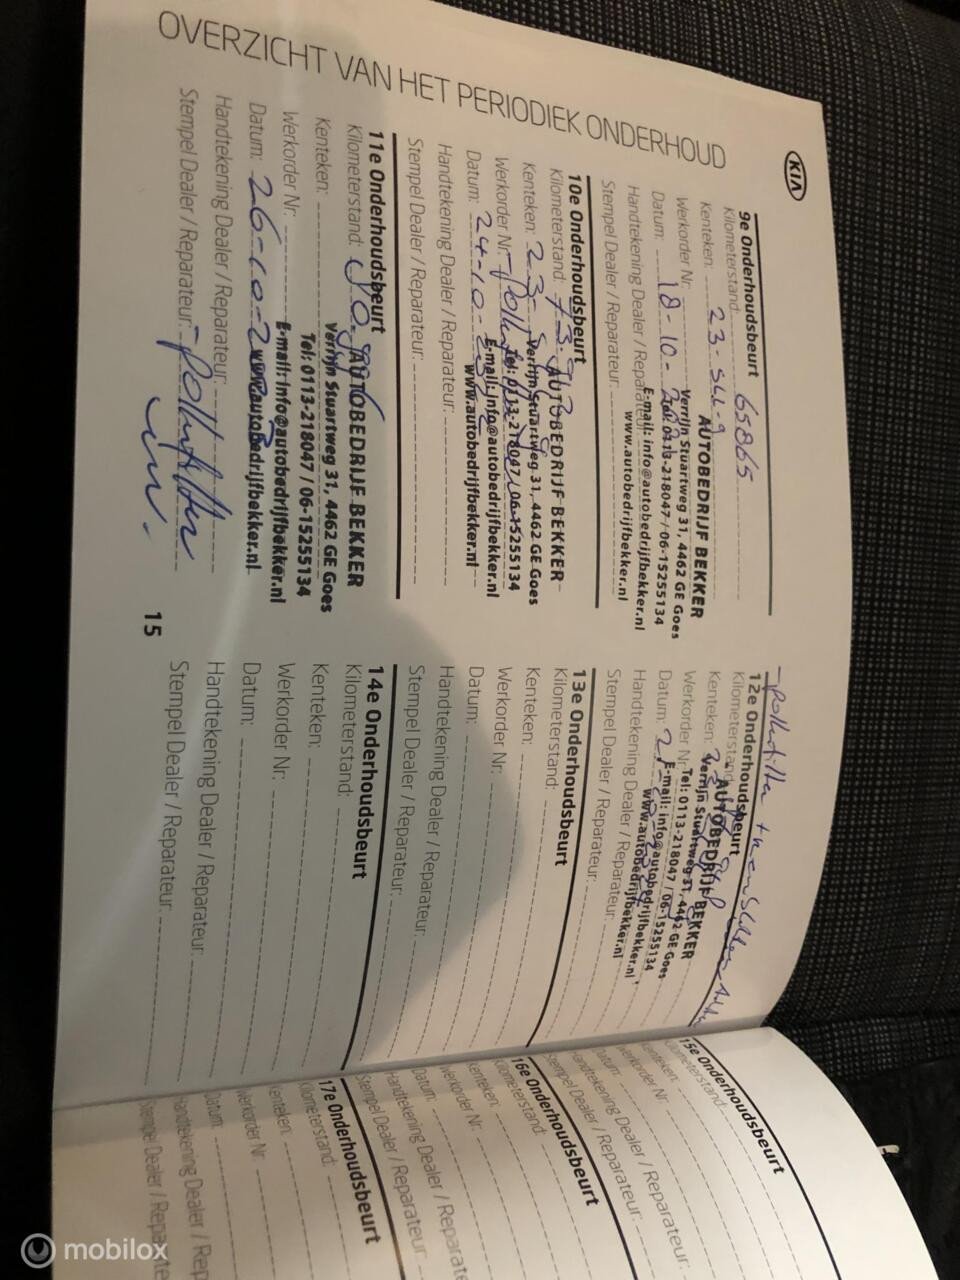 OVERZICHT VAN HET PERIODIEK ONDERHOUD
KIA
9e Onderhoudsbeurt
Kilometerstand: 65865
Kenteken: 23-SLL-9
Werkorder Nr:
Datum: 18-10-
Handtekening Dealer / Reparateur:
Stempel Dealer / Reparateur:
AUTOBEDRIJF BEKKER
Verrijn Stuartweg 31, 4462 GE Goes
Tel: 0113-218047 / 06-15255134
E-mail: info@autobedrijfbekker.nl
www.autobedrijfbekker.nl
10e Onderhoudsbeurt
Kilometerstand:
Kenteken: 23-
Werkorder Nr:
Datum: 24-10-
Handtekening Dealer / Reparateur:
Stempel Dealer / Reparateur:
AUTOBEDRIJF BEKKER
Verrijn Stuartweg 31, 4462 GE Goes
Tel: 0113-218047 / 06-15255134
E-mail: info@autobedrijfbekker.nl
www.autobedrijfbekker.nl
11e Onderhoudsbeurt
Kilometerstand:
Kenteken:
Werkorder Nr:
Datum: 26-10-
Handtekening Dealer / Reparateur:
Stempel Dealer / Reparateur:
AUTOBEDRIJF BEKKER
Verrijn Stuartweg 31, 4462 GE Goes
Tel: 0113-218047 / 06-15255134
E-mail: info@autobedrijfbekker.nl
www.autobedrijfbekker.nl
15
12e Onderhoudsbeurt
Kilometerstand:
Kenteken:
Werkorder Nr:
Datum:
Handtekening Dealer / Reparateur:
Stempel Dealer / Reparateur:
AUTOBEDRIJF BEKKER
Verrijn Stuartweg 31, 4462 GE Goes
Tel: 0113-218047 / 06-15255134
E-mail: info@autobedrijfbekker.nl
www.autobedrijfbekker.nl
13e Onderhoudsbeurt
Kilometerstand:
Kenteken:
Werkorder Nr:
Datum:
Handtekening Dealer / Reparateur:
Stempel Dealer / Reparateur:
14e Onderhoudsbeurt
Kilometerstand:
Kenteken:
Werkorder Nr:
Datum:
Handtekening Dealer / Reparateur:
Stempel Dealer / Reparateur:
15e Onderhoudsbeurt
Kilometerstand:
Kenteken:
Werkorder Nr:
Datum:
Handtekening Dealer / Reparateur:
Stempel Dealer / Reparateur:
16e Onderhoudsbeurt
Kilometerstand:
Kenteken:
Werkorder Nr:
Datum:
Handtekening Dealer / Reparateur:
Stempel Dealer / Reparateur:
17e Onderhoudsbeurt
Kilometerstand:
Kenteken:
Werkorder Nr
Datum:
Handtekening Dealer / Rep
Stempel Dealer / Repara
mobilox